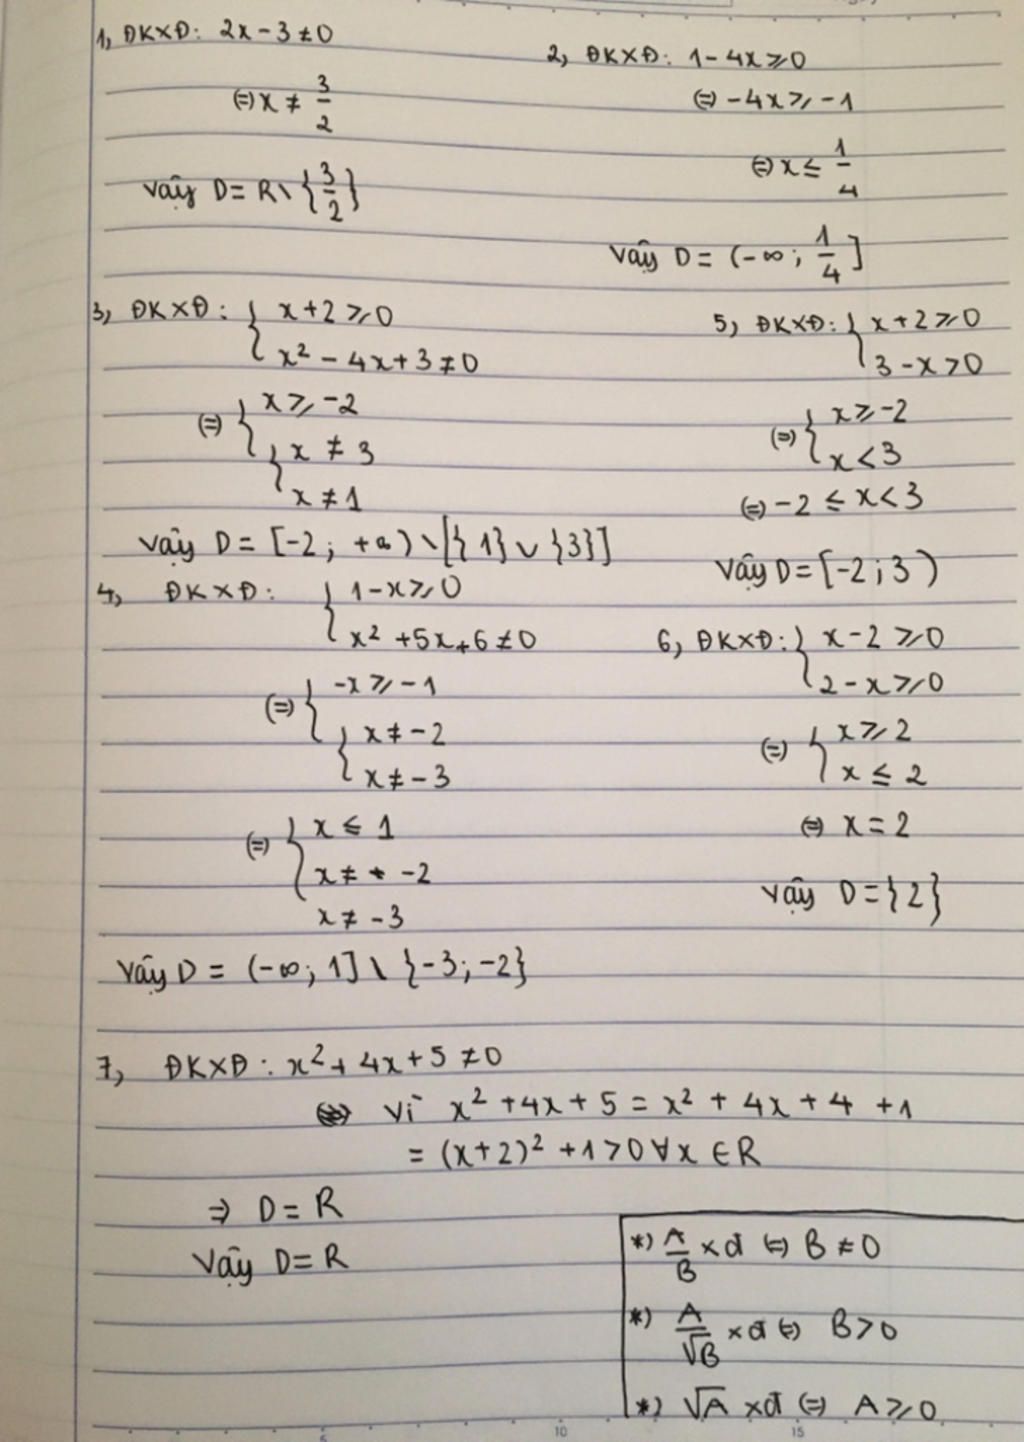 1, ĐKXĐ: 2x - 3 ≠ 0
(=) x ≠ 3/2
Vậy D = R \ {3/2}
2, ĐKXĐ: 1 - 4x ≥ 0
(=) -4x ≥ -1
(=) x ≤ 1/4
Vậy D = (-∞; 1/4]
3, ĐKXĐ: { x + 2 ≥ 0
x² - 4x + 3 ≠ 0
(=) { x ≥ -2
{ x ≠ 3
x ≠ 1
Vậy D = [-2; +∞) \ [{1} ∪ {3}]
4, ĐKXĐ: { 1 - x ≥ 0
x² + 5x + 6 ≠ 0
(=) { -x ≥ -1
{ x ≠ -2
x ≠ -3
(=) { x ≤ 1
x ≠ -2
x ≠ -3
Vậy D = (-∞; 1] \ {-3; -2}
5, ĐKXĐ: { x + 2 ≥ 0
3 - x > 0
(=) { x ≥ -2
x < 3
(=) -2 ≤ x < 3
Vậy D = [-2; 3)
6, ĐKXĐ: { x - 2 ≥ 0
2 - x ≥ 0
(=) { x ≥ 2
x ≤ 2
(=) x = 2
Vậy D = {2}
7, ĐKXĐ: x² + 4x + 5 ≠ 0
Vì x² + 4x + 5 = x² + 4x + 4 + 1
= (x + 2)² + 1 > 0 ∀x ∈ R
⇒ D = R
Vậy D = R
*) A/B xđ (=) B ≠ 0
*) A/√B xđ (=) B > 0
*) √A xđ (=) A ≥ 0
5 10 15